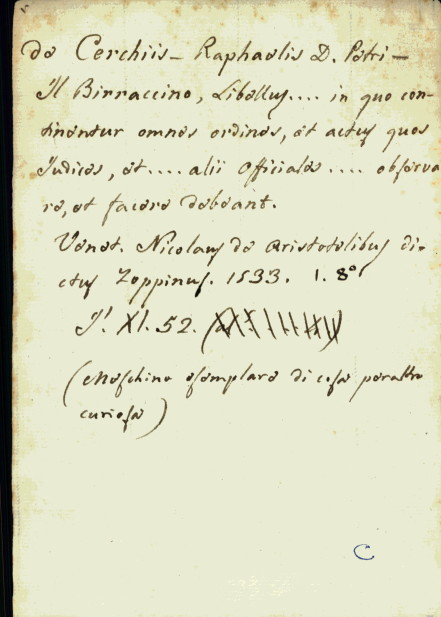 de Cerchiis – Raphaelis D. Petri –
Il Birraccino, Libellus.... in quo con-
tinentur omnes ordines, et actus quos
Judices, et .... alii officiales .... observa
re, et facere debeant.
Venet. Nicolaus de Aristotelibus di-
ctus Zoppinus. 1533. 1. 8°
J'. XI. 52.
(Meschino esemplare di cosa peraltro
curiosa)
C